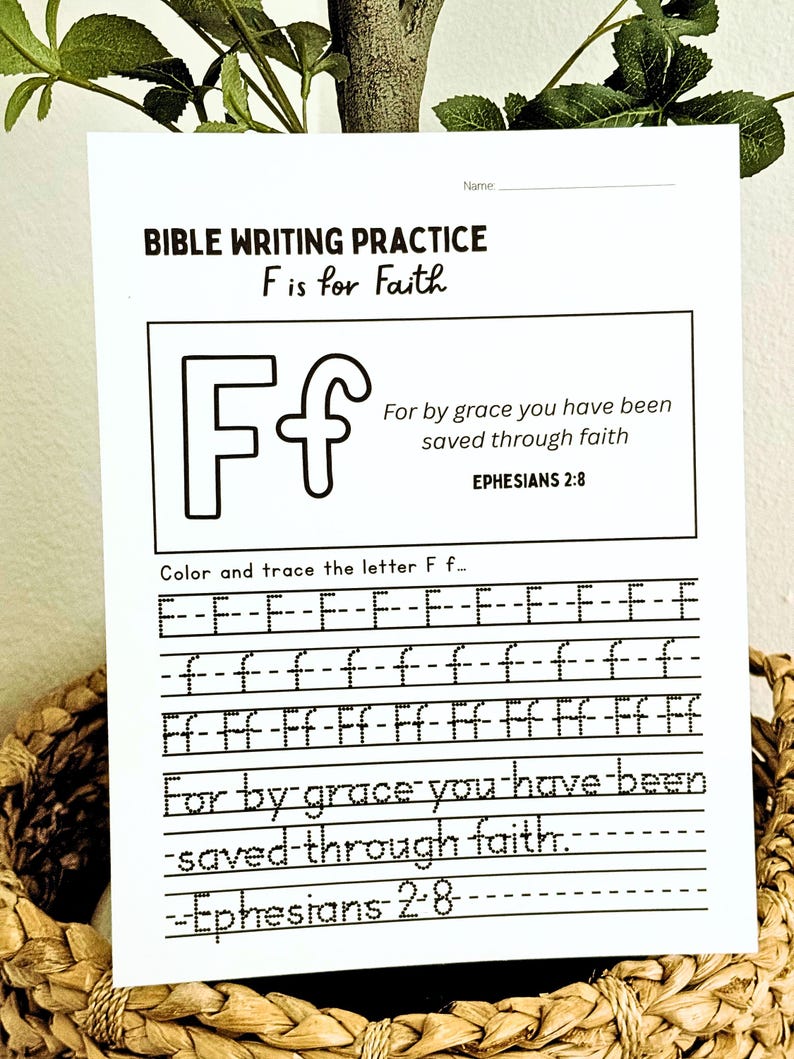 Name:
BIBLE WRITING PRACTICE
F is for Faith
Ff
For by grace you have been
saved through faith
EPHESIANS 2:8
Color and trace the letter F f...
F F F F F F F F F F F
f f f f f f f f f f
Ff Ff Ff Ff Ff Ff Ff Ff Ff Ff
For by grace you have been
saved through faith.
Ephesians 2:8